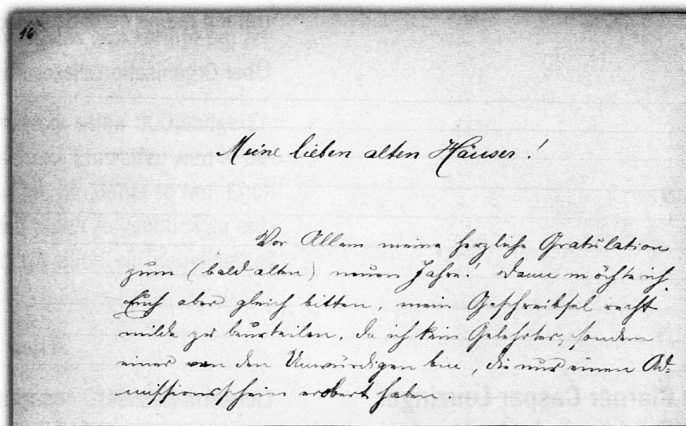 16
Meine lieben alten Häuser!
Vor Allem meine herzliche Gratulation
zum (bald alten) neuen Jahre! Dann möchte ich
Euch aber gleich bitten, mein Geschreibsel recht
milde zu beurteilen, da ich kein Gelehrter, sondern
einer von den Unwürdigen bin, die nur einen Ad-
missionsschein erobert haben.